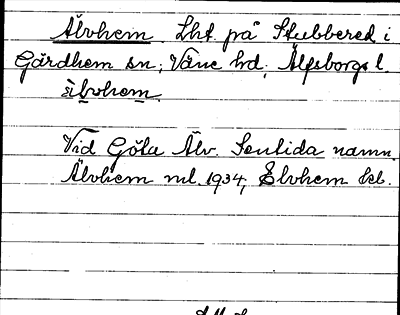 Älvhem Lht. på Stubbered i
Gärdhem sn; Väne hd, Älfsborgs l.
älvhem.
Vid Göta Älv. Sentida namn.
Älvhem ml. 1934, Elvhem kbl.